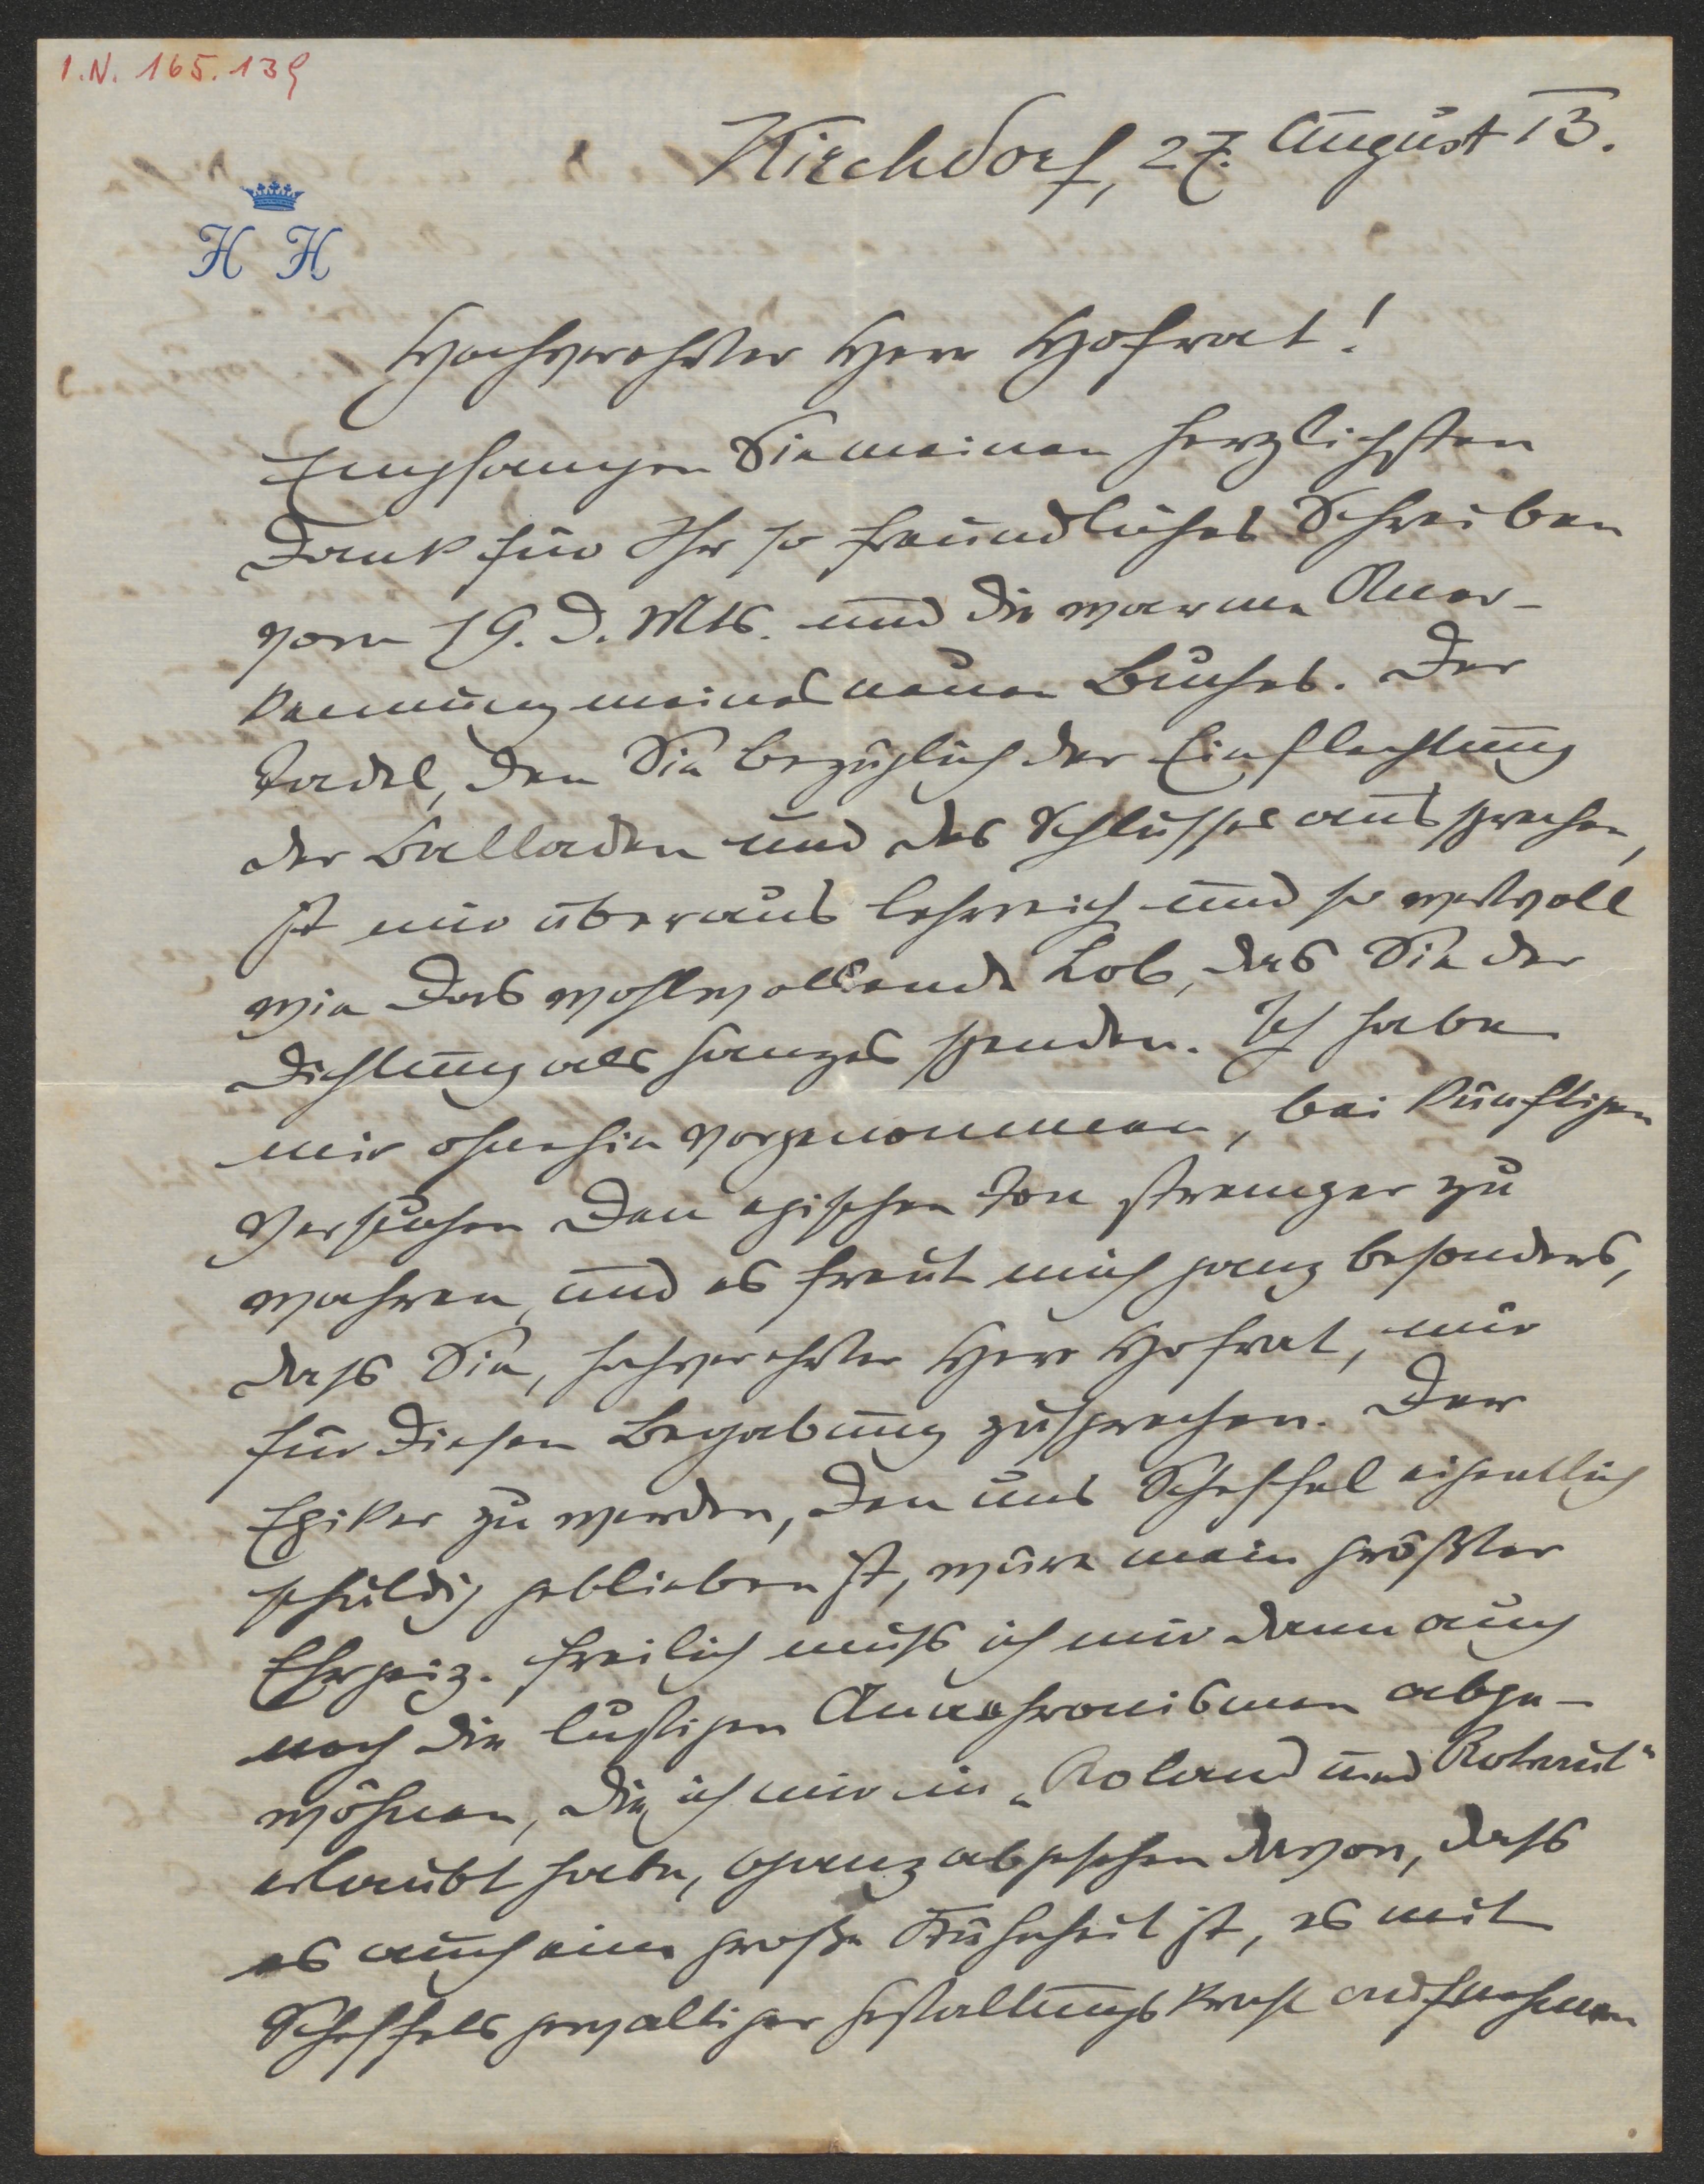 I.N. 165.139
Kirchdorf, 27. August 13.
H H
Hochverehrter Herr Hofrat!
Empfangen Sie meinen herzlichsten
Dank für Ihr so freundliches Schreiben
vom 19. d. Mts. und die warme Aner-
kennung meines neuen Buches. Der
Tadel, den Sie bezüglich der Einflechtung
der Balladen und des Schlusses aussprechen,
ist mir überaus lehrreich und so wertvoll
wie das wohlwollende Lob, das Sie der
Dichtung als Ganzes spenden. Ich habe
mir ohnehin vorgenommen, bei künftigen
Versuchen den epischen Ton strenger zu
wahren, und es freut mich ganz besonders,
dass Sie, hochverehrter Herr Hofrat, mir
für diesen Begabung zusprechen. Der
Epiker zu werden, den uns Scheffel eigentlich
schuldig geblieben ist, wäre mein größter
Ehrgeiz. Freilich muss ich mir dann auch
noch die lustigen Anachronismen abge-
wöhnen, die ich mir in „Roland und Rotraut"
erlaubt habe, ganz abgesehen davon, dass
es auch eine große Kühnheit ist, es mit
Scheffels gewaltiger Gestaltungskraft aufnehmen